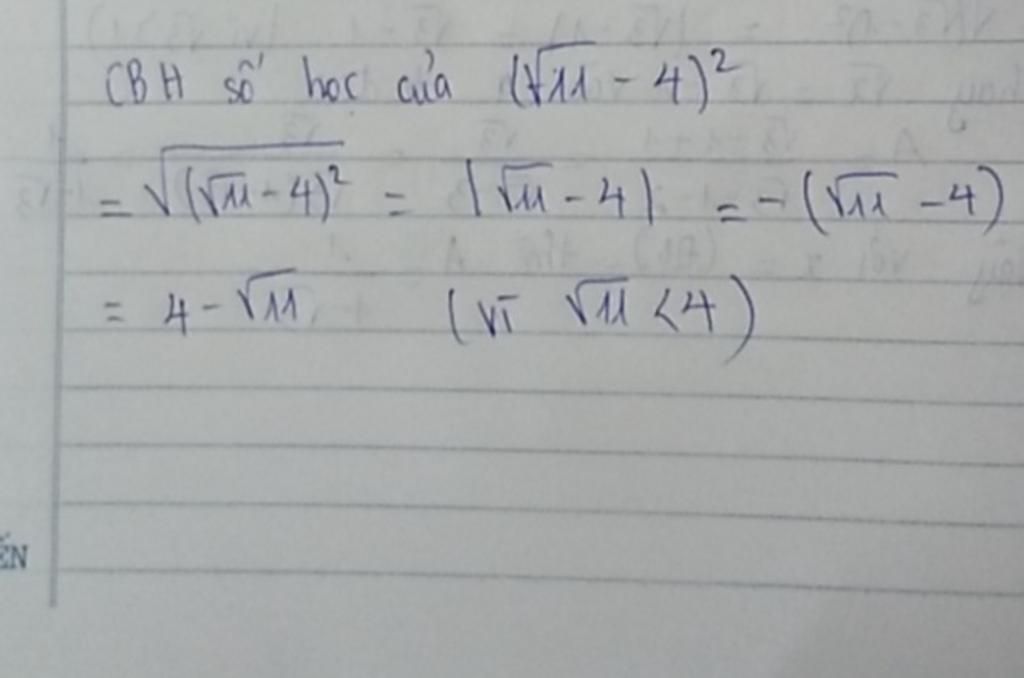 CBH số học của (√11 - 4)²
= √(√11 - 4)² = |√11 - 4| = - (√11 - 4)
= 4 - √11 (vì √11 < 4)
ẾN